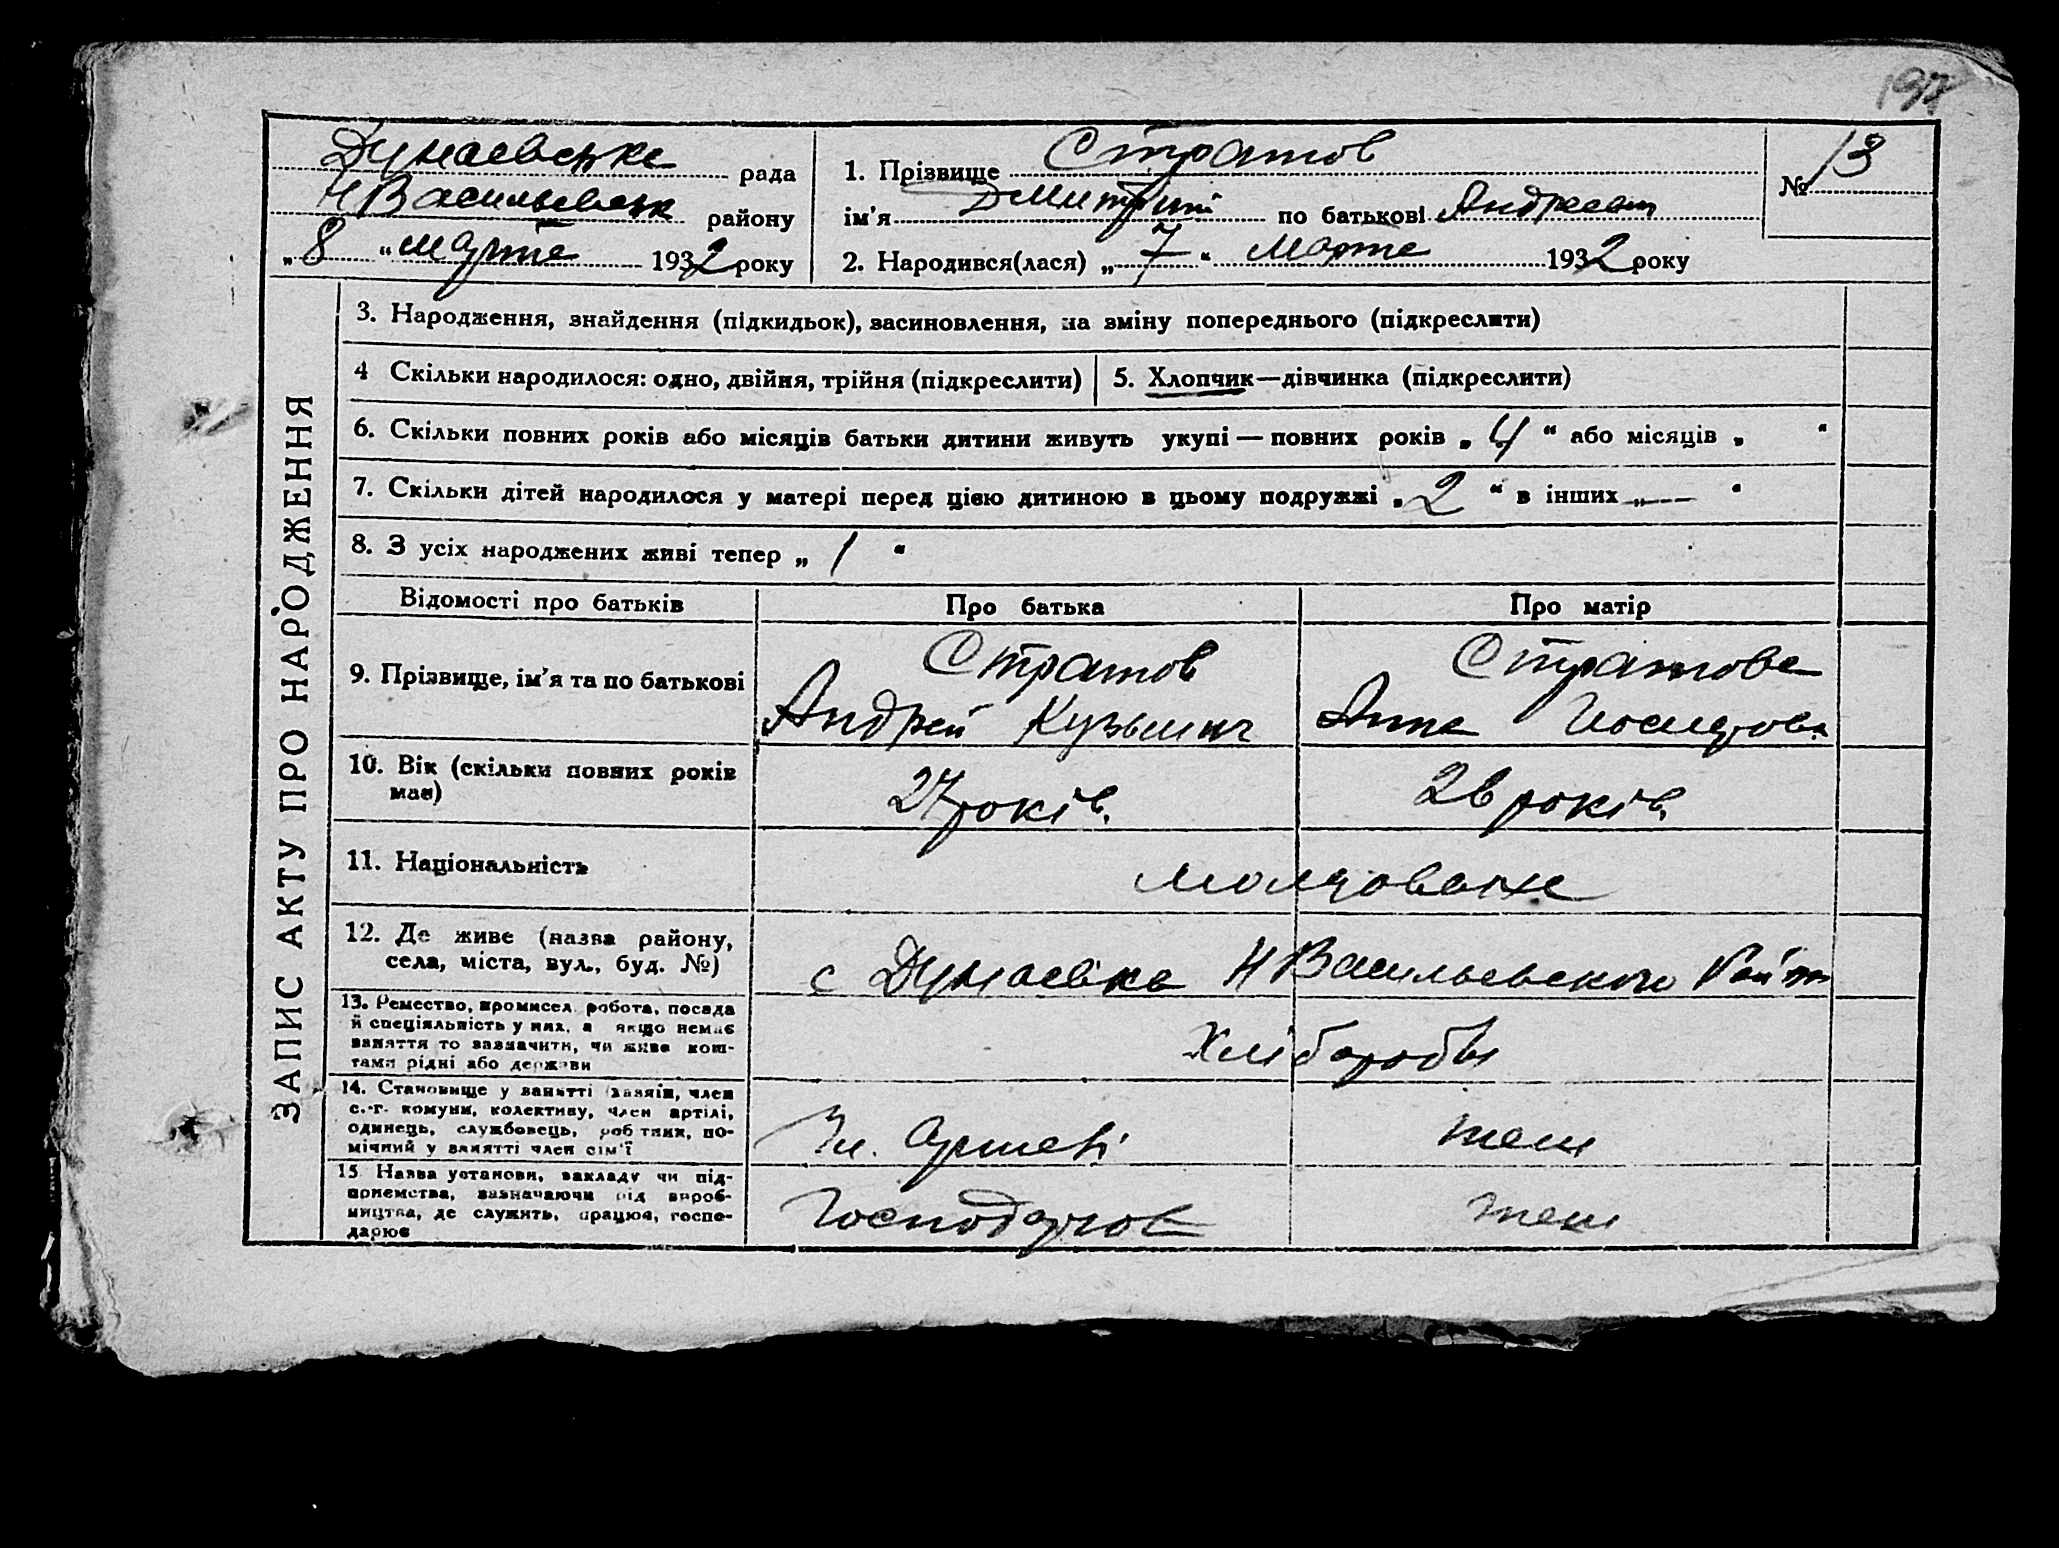 197
Дунаевска рада
Н Васильевськ району
„8“ марта 1932 року
1. Прізвище Стратов
ім’я Дмитрий по батькові Андреев
2. Народився(лася) „7“ марта 1932 року
№ 13
ЗАПИС АКТУ ПРО НАРОДЖЕННЯ
3. Народження, знайдення (підкидьок), засиновлення, на зміну попереднього (підкреслити)
4 Скільки народилося: одно, двійня, трійня (підкреслити)
5. Хлопчик—дівчинка (підкреслити)
6. Скільки повних років або місяців батьки дитини живуть укупі — повних років „4“ або місяців „ “
7. Скільки дітей народилося у матері перед цією дитиною в цьому подружжі „2“ в інших „—“
8. З усіх народжених живі тепер „1“
Відомості про батьків Про батька Про матір
9. Прізвище, ім’я та по батькові
Стратов
Андрей Кузьмич
Стратова
Анна
10. Вік (скільки повних років
має)
27 років.
26 років.
11. Національність
молдоване
12. Де живе (назва району,
села, міста, вул., буд. №)
с Дунаевка Н Васильевского
13. Ремество, промисел, робота, посада
й спеціяльність у них, а якщо немає
заняття то зазначити, чи живе кош-
тами рідні або держави
Хлібороби
14. Становище у занятті (хазяїн, член
с.-г. комуни, колективу, член артілі,
одинець, службовець, робітник, по-
мічний у занятті член сім’ї
Чл. артели
15. Назва установи, закладу чи під-
приємства, зазначаючи рід вироб-
ництва, де служить, працює, госпо-
дарює